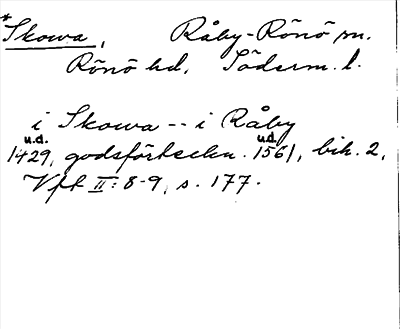 *Skowa, Råby-Rönö sn.
Rönö hd, Söderm. l.
i Skowa -- i Råby
u.d. u.d.
1429, godsförteckn. 1561, bih. 2,
Vft II: 8-9, s. 177.